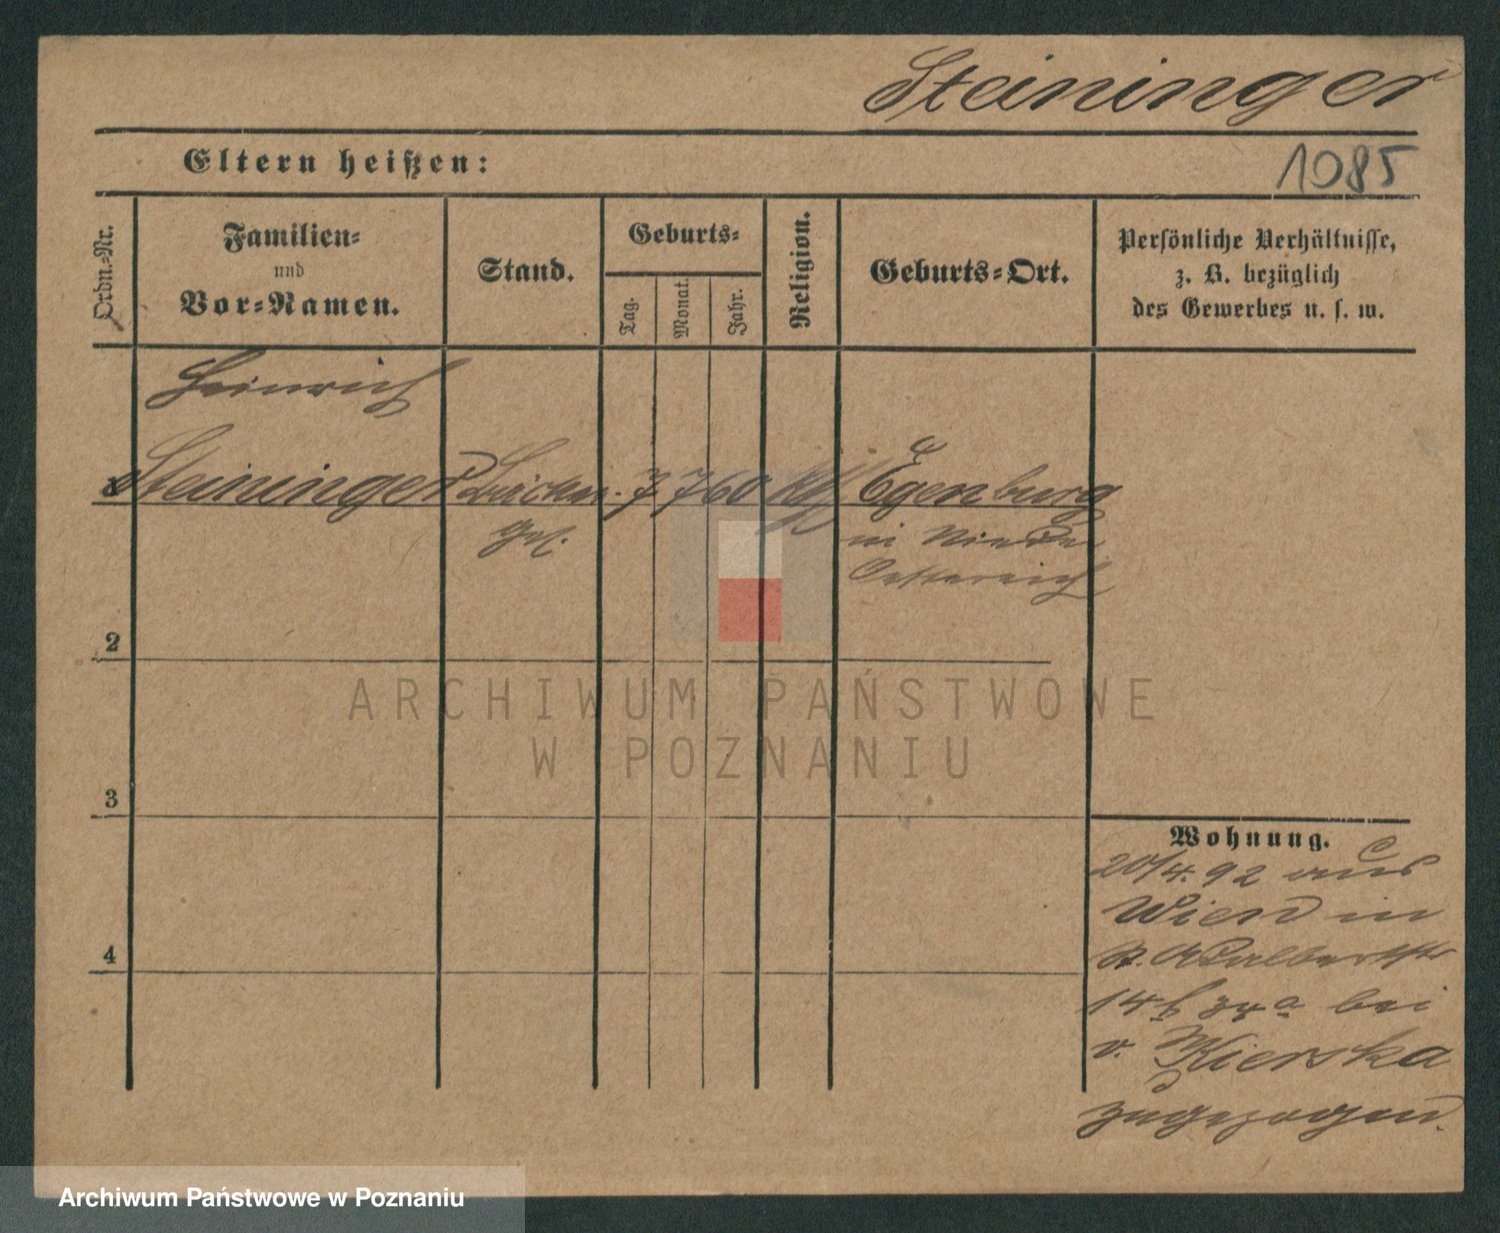 Steininger
Eltern heißen:
1085
Ordn.=Nr.
Familien=
und
Vor=Namen.
Stand.
Geburts=
Tag.
Monat.
Jahr.
Religion.
Geburts=Ort.
Persönliche Verhältnisse,
z. B. bezüglich
des Gewerbes u. s. w.
Heinrich
1 Steininger 7 7 60 kth Egenburg
in Nieder
Oesterreich
2
3
4
Wohnung.
20/4. 92 aus
Wien in
St. Adalbertstr
14 bei
v. Kierska
zugezogen.
ARCHIWUM PAŃSTWOWE
W POZNANIU
Archiwum Państwowe w Poznaniu